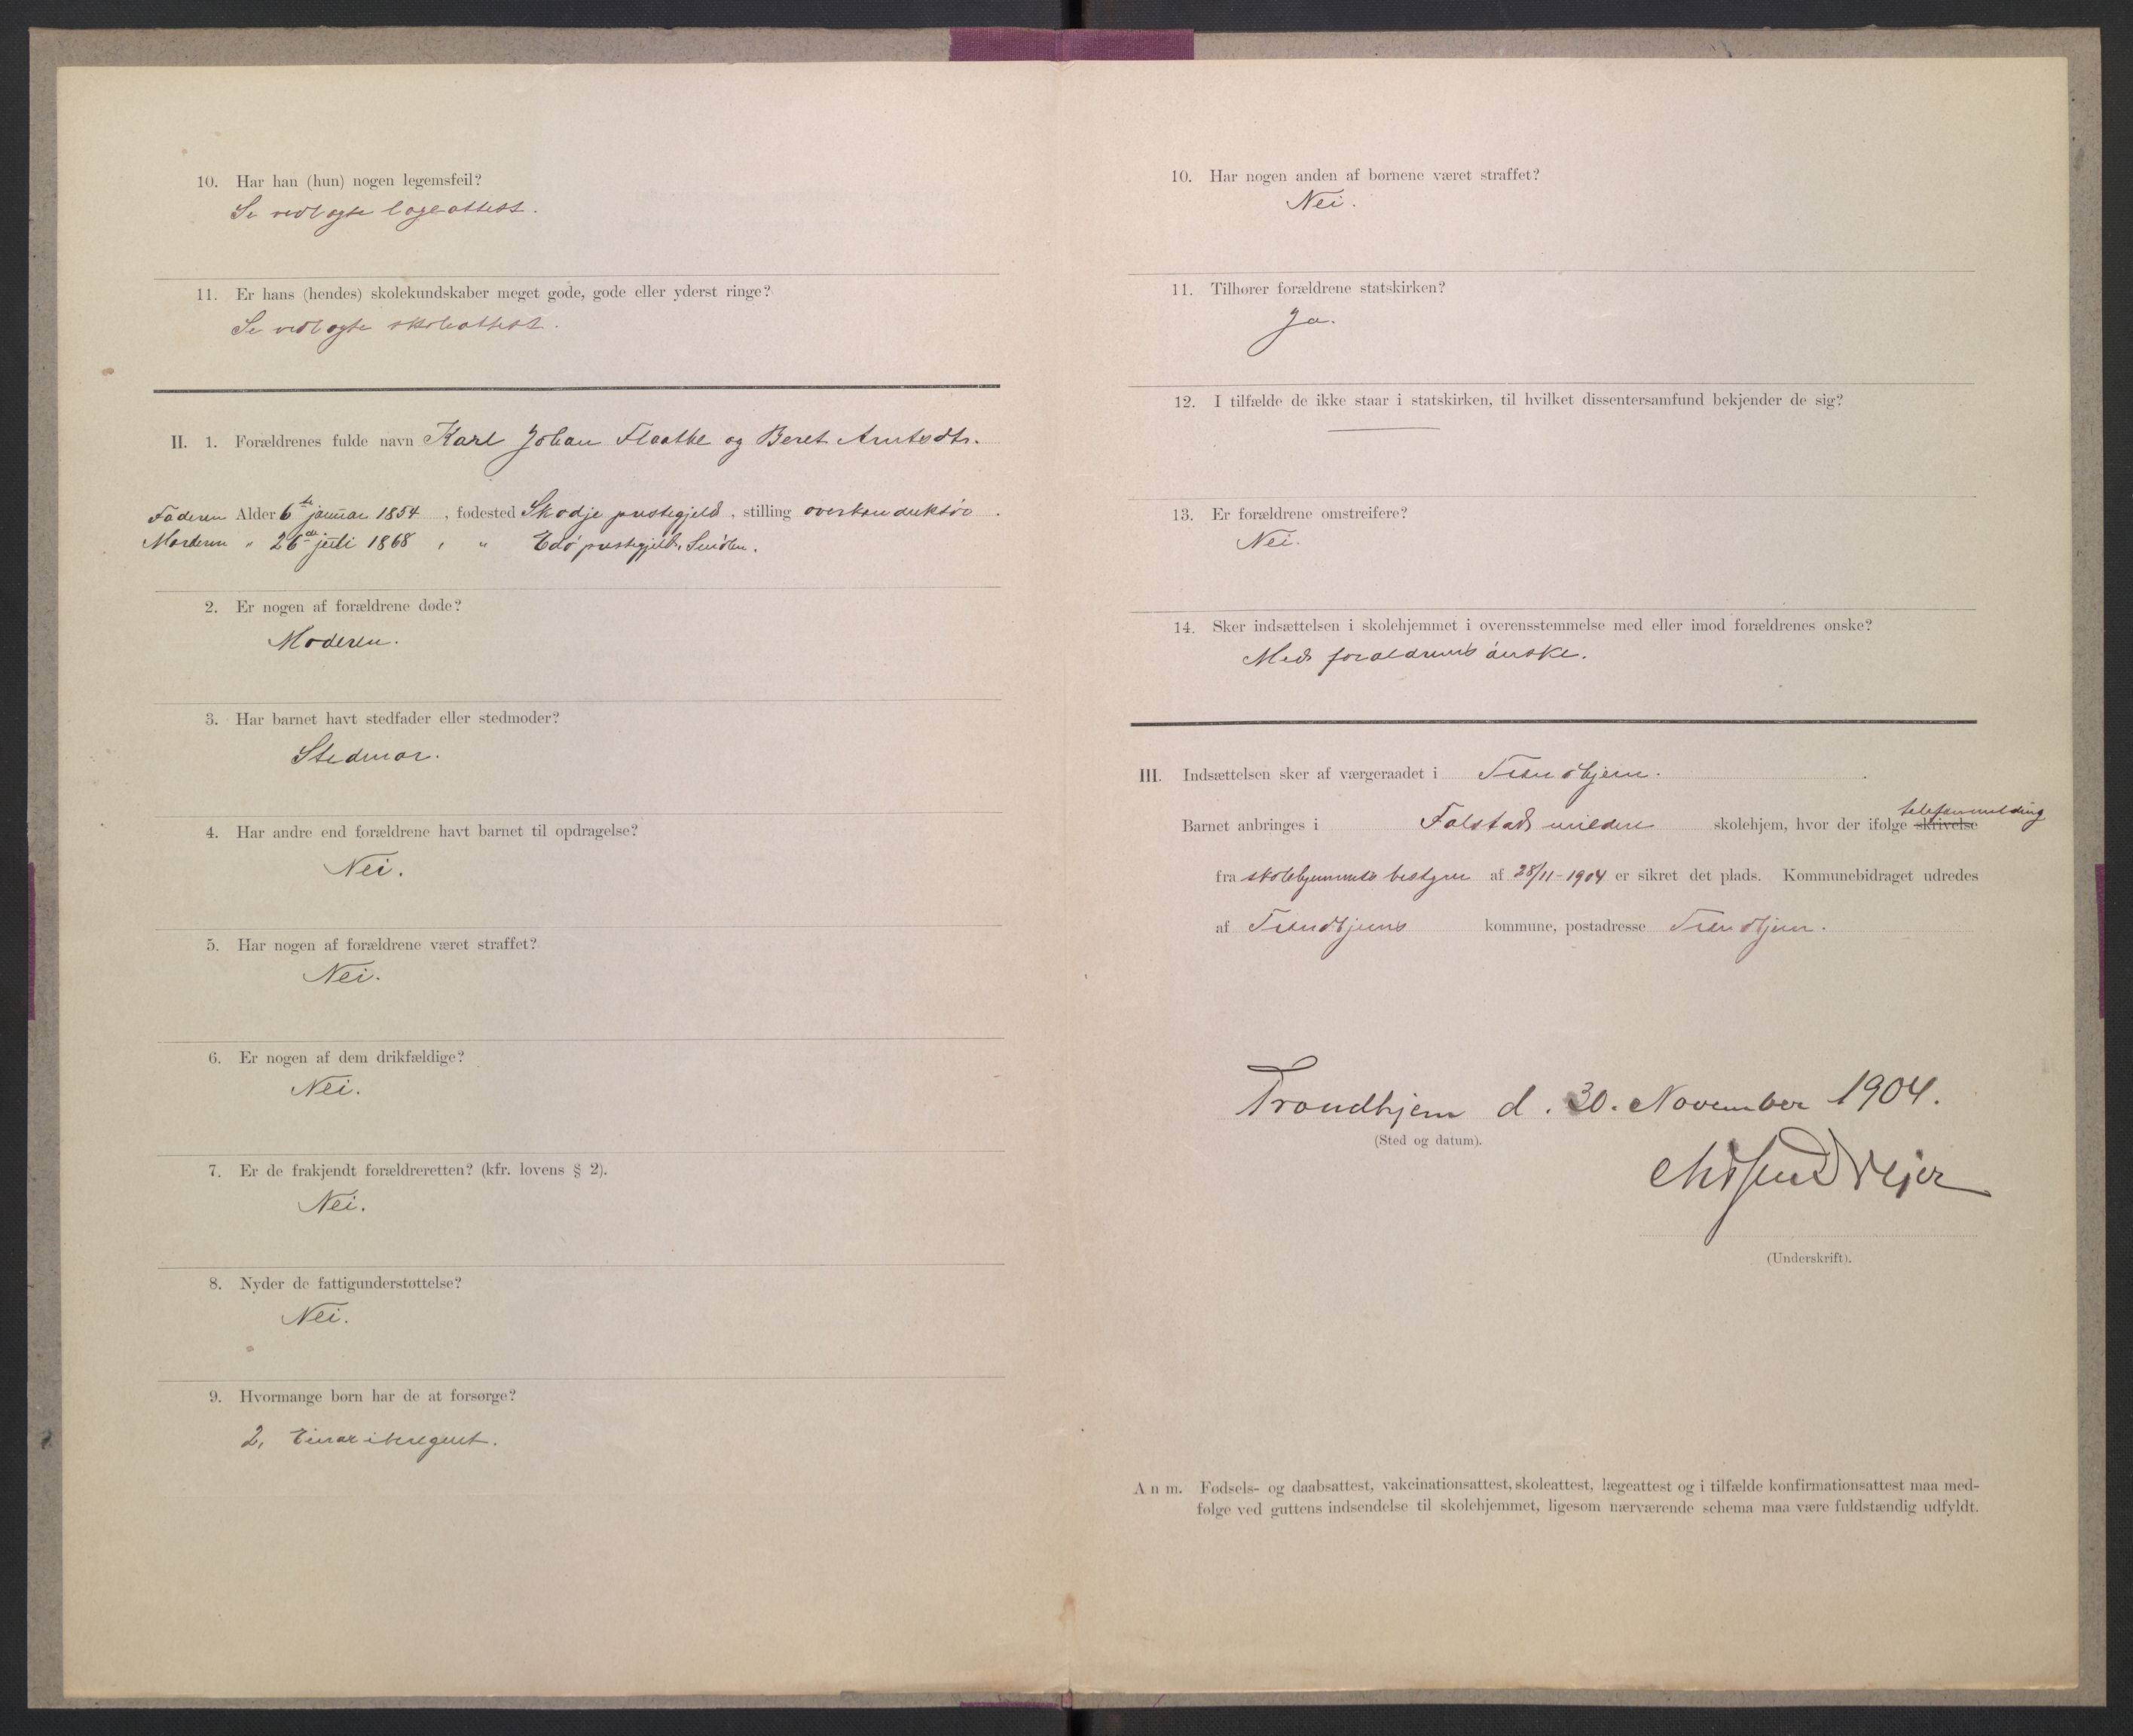 10. Har han (hun) nogen legemsfeil?
Se vedlagte lægeattest.
11. Er hans (hendes) skolekundskaber meget gode, gode eller yderst ringe?
Se vedlagte skoleattest.
II. 1. Forældrenes fulde navn Karl Johan Flaathe og Beret Arntsdtr.
Faderen Alder 6te januar 1854, fødested Skodje prestegjeld, stilling overkonduktør.
Moderen " 26de juli 1868, " Edø prestegjeld, Smølen.
2. Er nogen af forældrene døde?
Moderen.
3. Har barnet havt stedfader eller stedmoder?
Stedmor.
4. Har andre end forældrene havt barnet til opdragelse?
Nei.
5. Har nogen af forældrene været straffet?
Nei.
6. Er nogen af dem drikfældige?
Nei.
7. Er de frakjendt forældreretten? (kfr. lovens § 2).
Nei.
8. Nyder de fattigunderstøttelse?
Nei.
9. Hvormange børn har de at forsørge?
2, Einar iberegnet.
10. Har nogen anden af børnene været straffet?
Nei.
11. Tilhører forældrene statskirken?
Ja.
12. I tilfælde de ikke staar i statskirken, til hvilket dissentersamfund bekjender de sig?
13. Er forældrene omstreifere?
Nei.
14. Sker indsættelsen i skolehjemmet i overensstemmelse med eller imod forældrenes ønske?
Med forældrenes ønske.
III. Indsættelsen sker af værgeraadet i Trondhjem.
telefonmelding
Barnet anbringes i Falstad mildere skolehjem, hvor der ifølge skrivelse
fra skolehjemmets bestyrer af 28/11-1904 er sikret det plads. Kommunebidraget udredes
af Trondhjems kommune, postadresse Trondhjem.
Trondhjem d. 30. November 1904.
(Sted og datum).
(Underskrift).
Anm. Fødsels- og daabsattest, vakcinationsattest, skoleattest, lægeattest og i tilfælde konfirmationsattest maa med-
følge ved guttens indsendelse til skolehjemmet, ligesom nærværende schema maa være fuldstændig udfyldt.